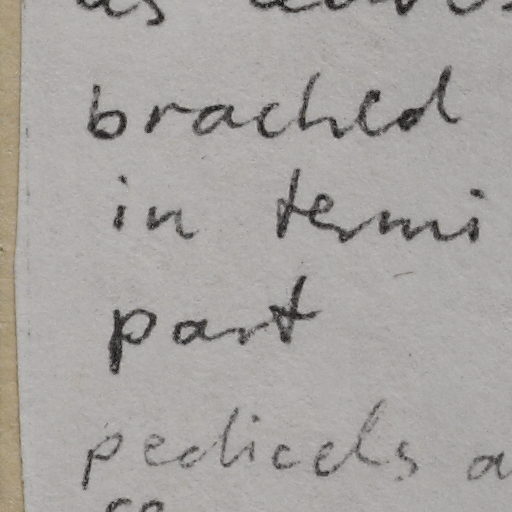 as
brached
in termi
part
pedicels a